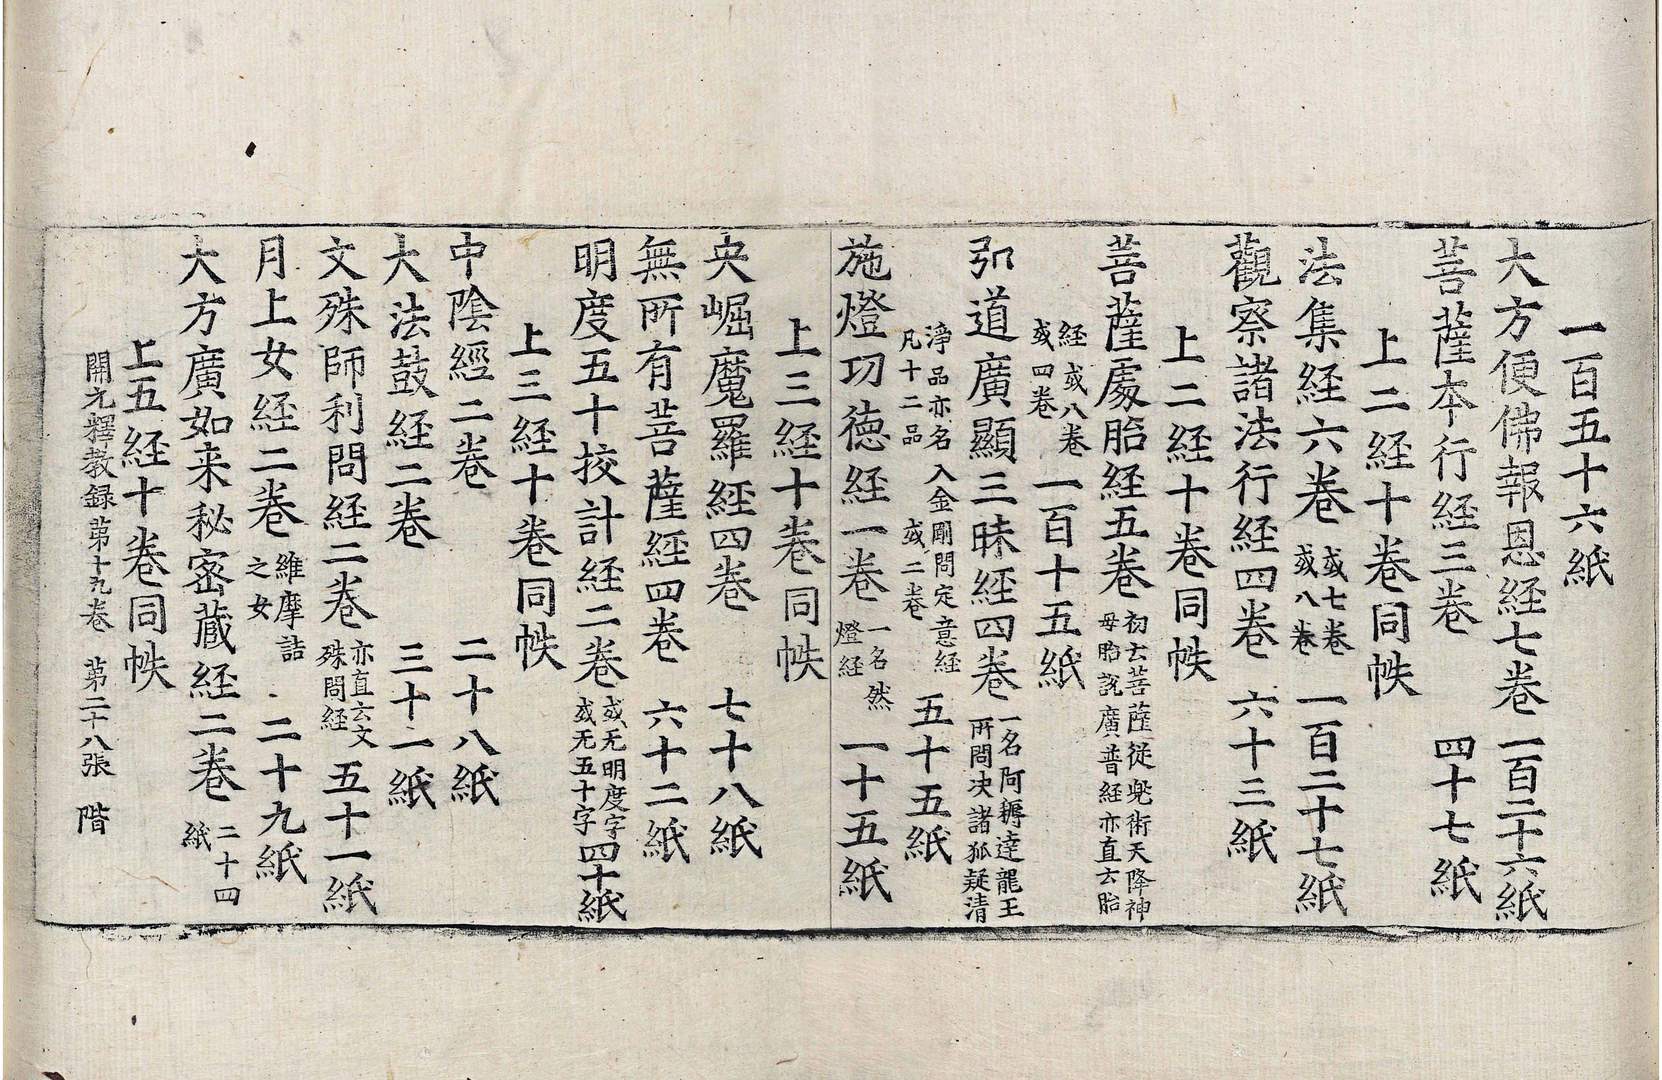 一百五十六紙
大方便佛報恩経七巻 一百二十六紙
菩薩本行経三巻 四十七紙
上二経十巻同帙
法集経六巻 或七巻 或八巻 一百二十七紙
觀察諸法行経四巻 六十三紙
上二経十巻同帙
菩薩處胎経五巻 初云菩薩従兜術天降神母胎説廣普経亦直云胎
経或八巻或四巻 一百十五紙
弘道廣顯三昧経四巻 一名阿耨達龍王所問决諸狐疑清
淨品亦名入金剛問定意経凡十二品或二巻 五十五紙
施燈功徳経一巻 一名然燈経 一十五紙
上三経十巻同帙
央崛魔羅経四巻 七十八紙
無所有菩薩經四巻 六十二紙
明度五十挍計経二巻 或无明度字或无五十字 四十紙
上三経十巻同帙
中陰經二巻 二十八紙
大法鼓経二巻 三十一紙
文殊師利問経二巻 亦直云文殊問経 五十一紙
月上女経二巻 維摩詰之女 二十九紙
大方廣如来秘密蔵経二巻 二十四紙
上五経十巻同帙
開元釋教録第十九巻 第二十八張 階